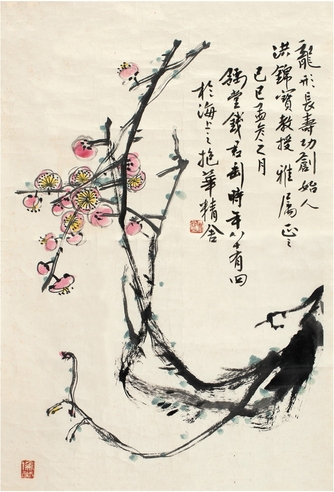 龍形長壽功創始人
洪錦寶教授雅屬正之
己巳孟冬之月
錢君匋時年八十有四
於海上之抱華精舍